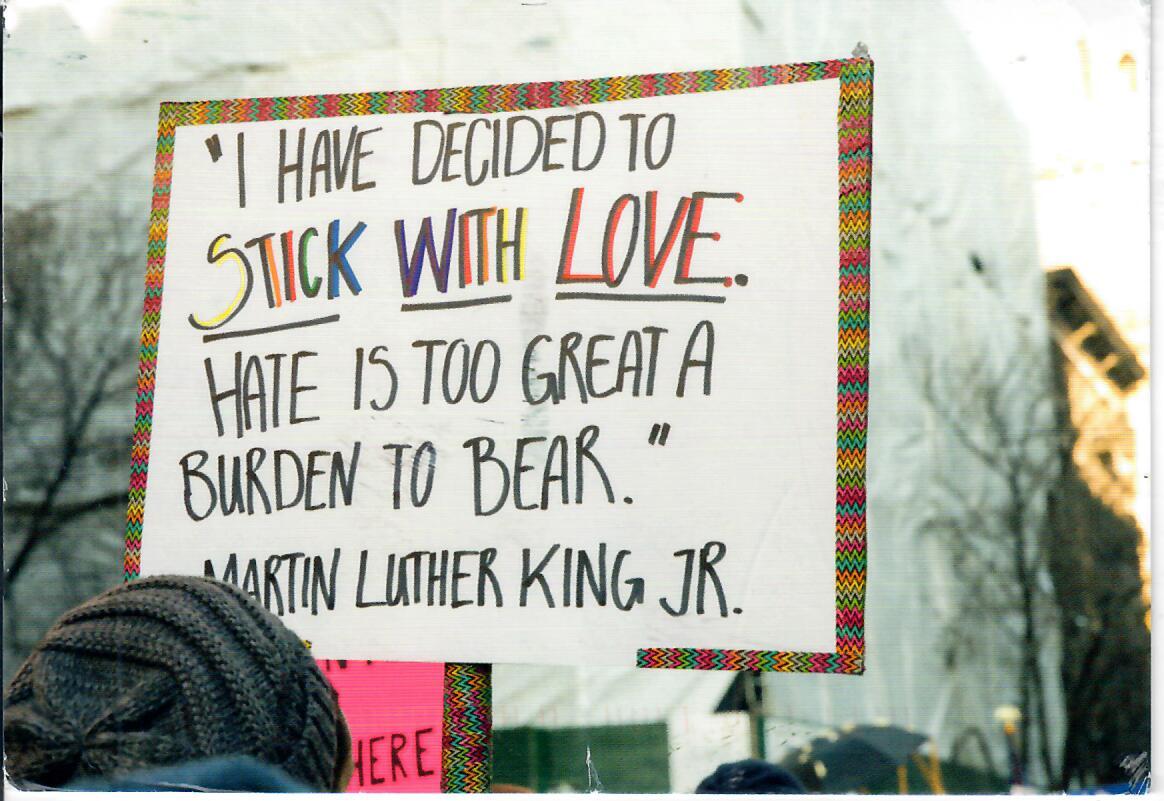 "I HAVE DECIDED TO
STICK WITH LOVE.
HATE IS TOO GREAT A
BURDEN TO BEAR."
MARTIN LUTHER KING JR.
HERE